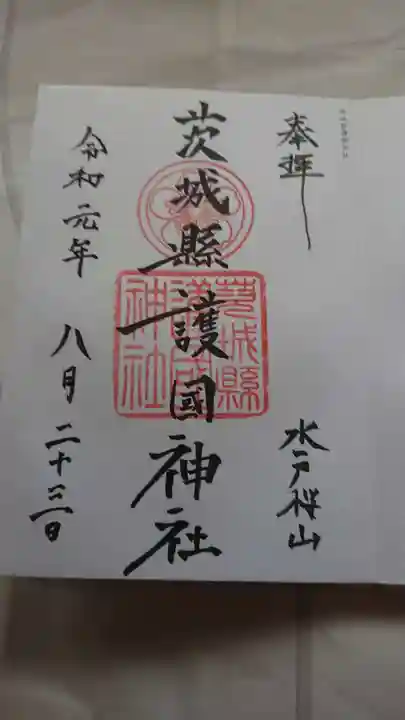 奉拝
水戸桜山
茨城縣護國神社
茨城縣
護國
神社
令和元年 八月二十三日